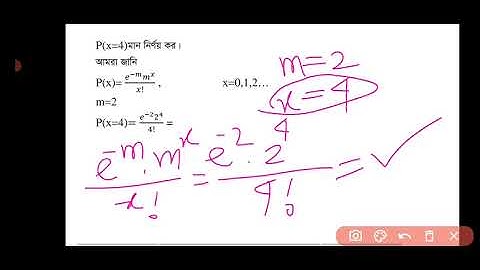 P(x=4)মান নির্ণয় কর।
আমরা জানি
P(x)=e^{-m}m^x/x! , x=0,1,2…
m=2
P(x=4)=e^{-2}2^4/4! =
m=2
x=4
e^{-m}.m^x/x! = e^{-2}.2^4/4! =